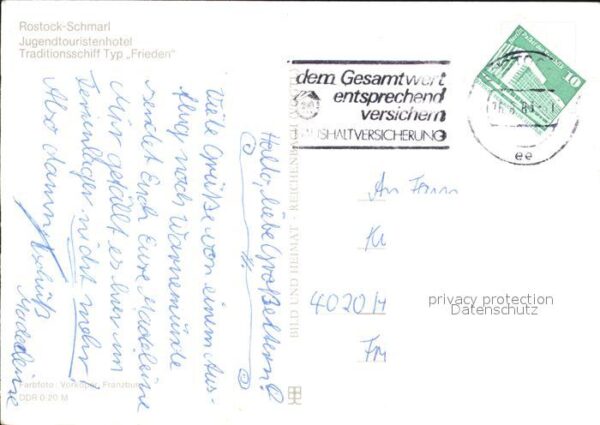 Rostock-Schmarl
Jugendtouristenhotel
Traditionsschiff Typ „Frieden"
Hallo, liebe Großeltern!
Viele Grüße von einem Aus-
flug nach Warnemünde
sendet Euch Eure Madeleine
Mir gefällt es hier im
Ferienlager nicht mehr!
Also dann, tschüß
Madeleine
BILD UND HEIMAT · REICHENBACH
dem Gesamtwert
entsprechend
versichern
HAUSHALTVERSICHERUNG
10
ee
An Fam
4020/4
privacy protection
Datenschutz
Farbfoto: Vorköper, Franzburg
DDR 0.20 M